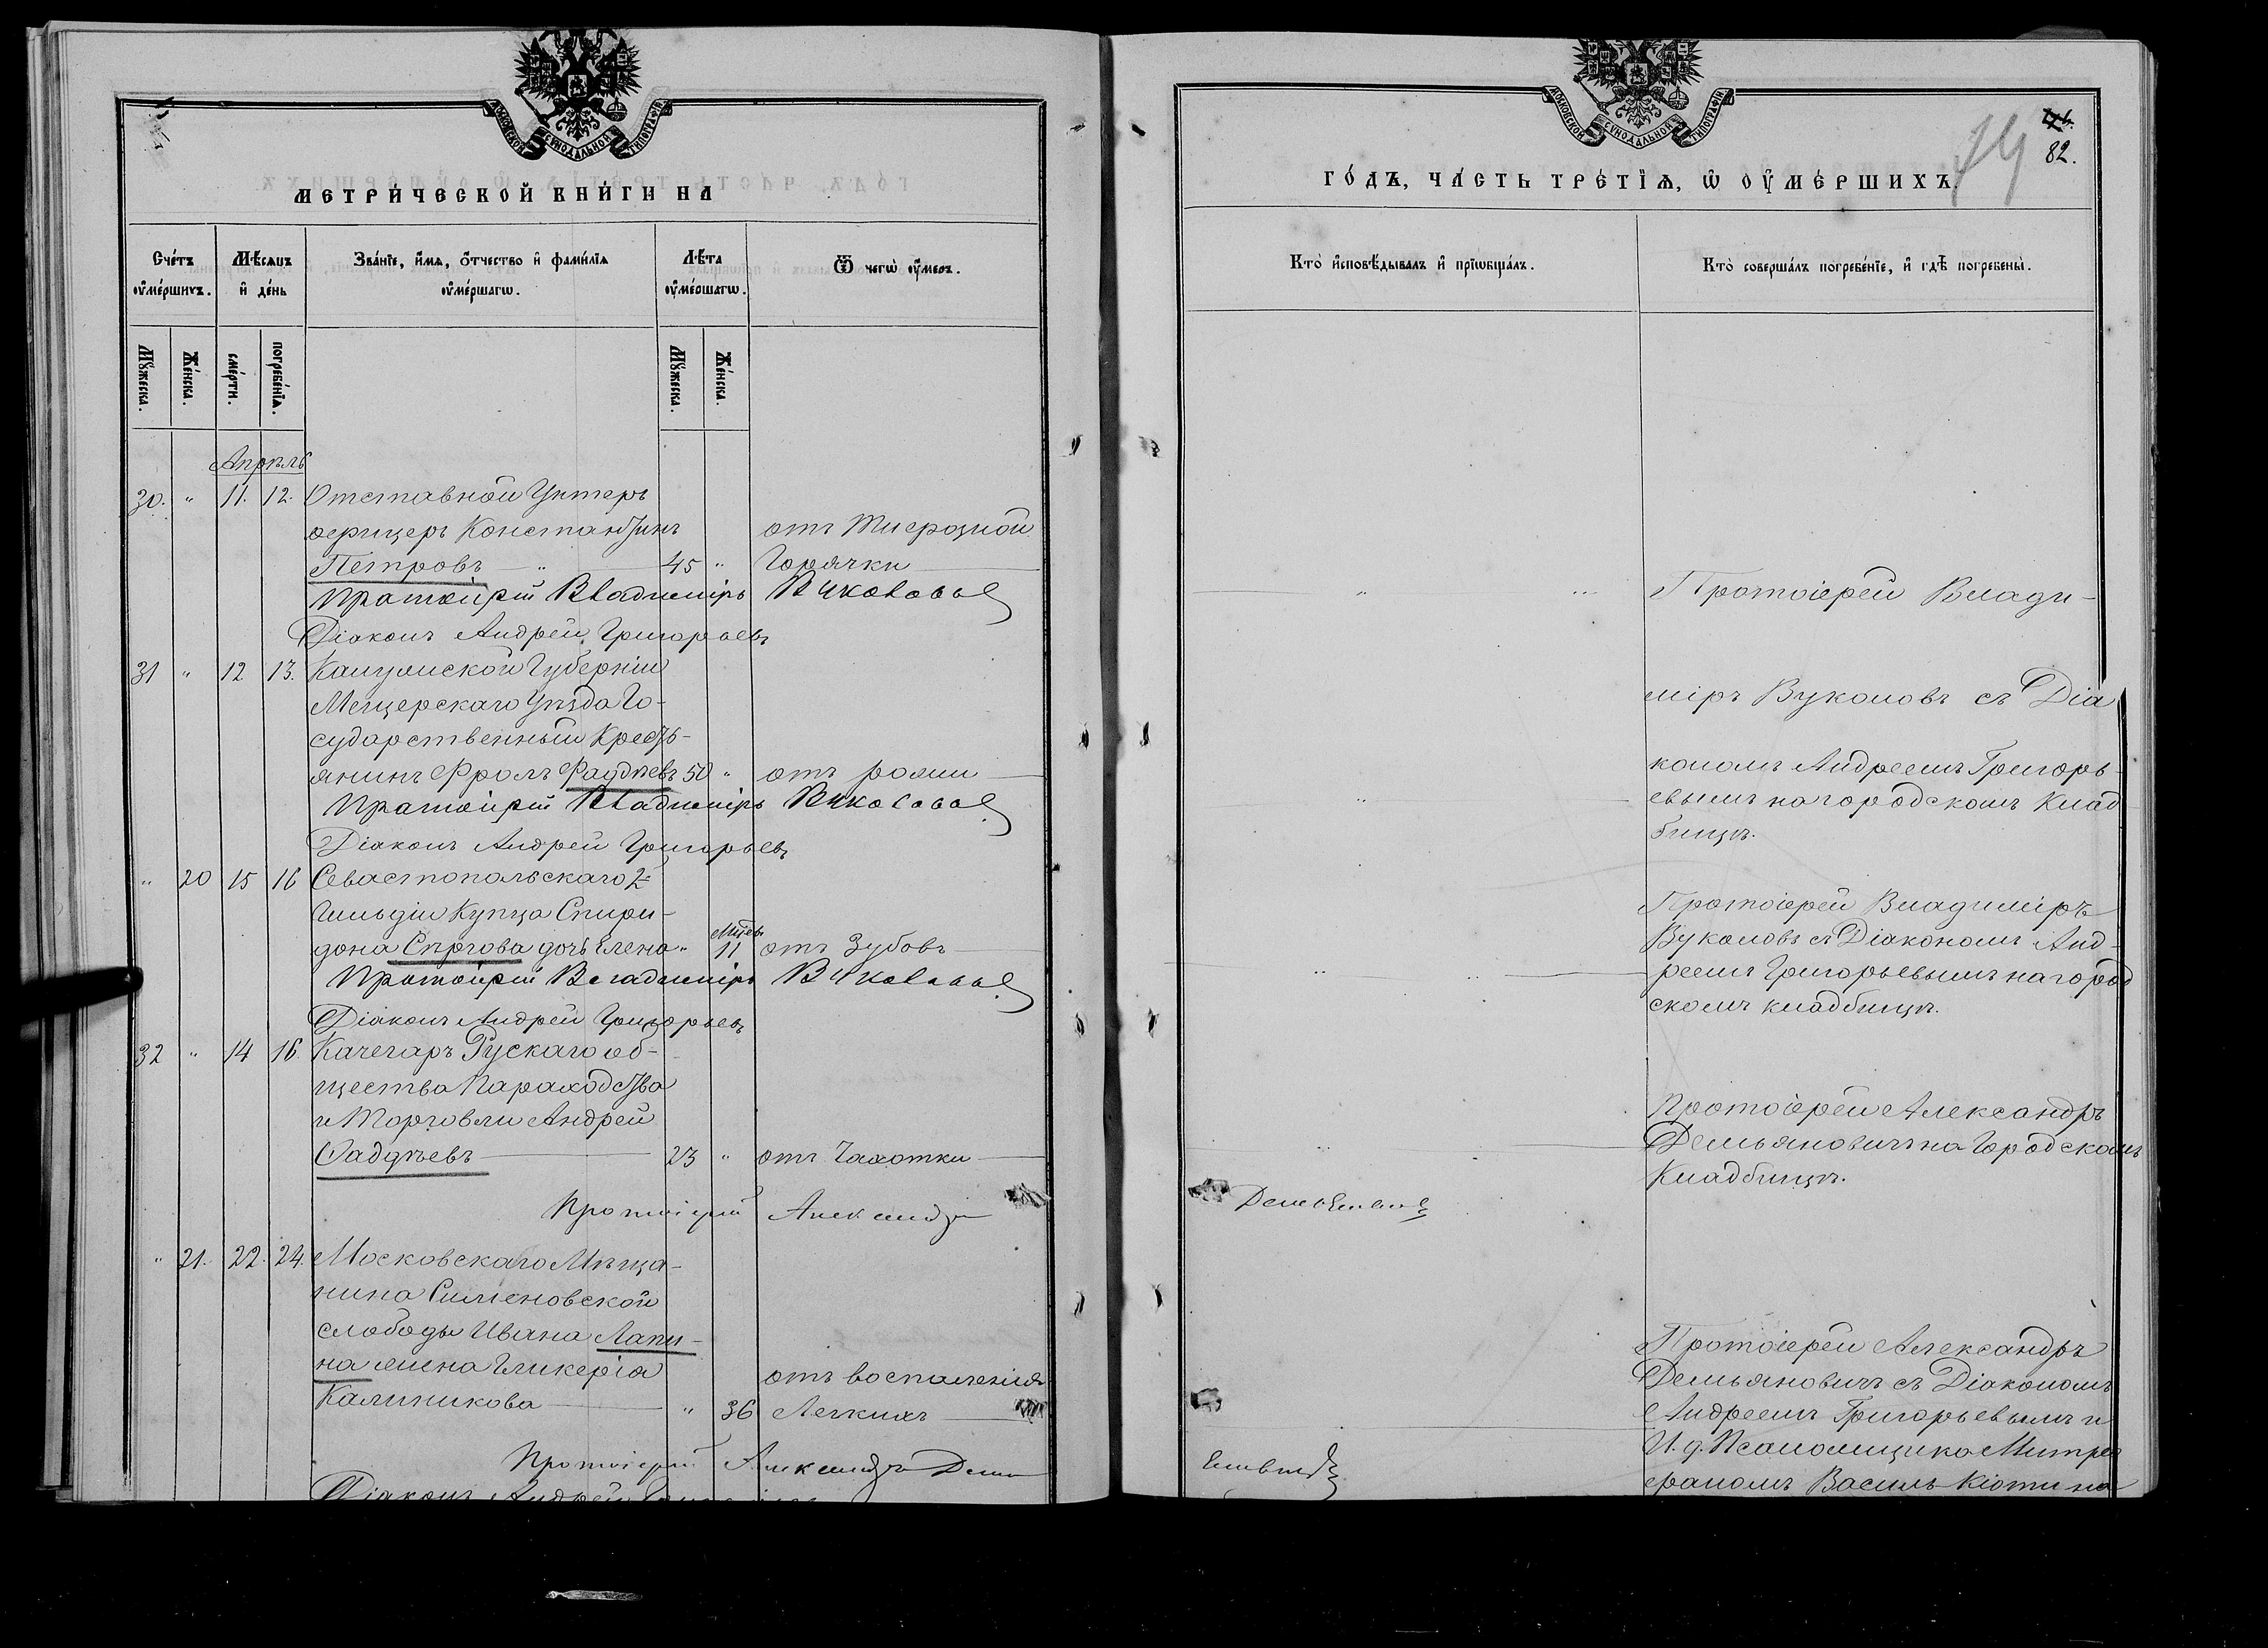 МОСКОВСКОЙ СѴНОДАЛЬНОЙ ТИПОГРАФІИ
МЕТРИ́ЧЕСКОЙ КНИ́ГИ НА
Сче́тъ ᲂу҆ме́ршихъ.
Мѣ́сѧцъ и҆ де́нь
Зва́нїе, и҆́мѧ, ѻ҆́тчество и҆ фами́лїѧ ᲂу҆ме́ршагѡ.
Лѣ́та ᲂу҆ме́ршагѡ.
Ѿ чегѡ̀ ᲂу҆́меръ.
Мꙋ́жеска.
Же́нска.
сме́рти.
погребе́нїѧ.
Мꙋ́жеска.
Же́нска.
Апрѣль
30. " 11. 12. Отставной Унтеръ
офицеръ Константинъ отъ Тифозной
Петровъ — " — 45 " Горячки
Протоіерей Владиміръ Вуколовъ
Діаконъ Андрей Григорьевъ
31 " 12 13. Губерніи
Мещерскаго Уѣзда Го-
сударственный Кресть-
янинъ Фролъ Фаддѣевъ 50 " отъ рожи
Протоіерей Владиміръ Вуколовъ
Діаконъ Андрей Григорьевъ
" 20 15 16 Севастопольскаго 2
Гильдіи Купца Спири-
дона Сѣргова дочь Елена " Мѣсев. 11 отъ Зубовъ
Протоіерей Владиміръ Вуколовъ
Діаконъ Андрей Григорьевъ
32 " 14 16. Качегаръ Рускаго об-
щества Параходства
и Торговли Андрей
Фаддѣевъ — 23 " отъ Чахотки
Протоіерей Александръ
" 21. 22. 24. Московскаго Мѣща-
нина Сименовской
слободы Ивана Лапи-
на жена Гликерія отъ воспаленія
Калиникова — " 36 Легкихъ
Протоіерей Александръ Демь
Діаконъ Андрей
МОСКОВСКОЙ СѴНОДАЛЬНОЙ ТИПОГРАФІИ
82.
ГО́ДЪ, ЧА́СТЬ ТРЕ́ТЇѦ, Ѡ҆ ОУ҆МЕ́РШИХЪ.
Кто̀ и҆сповѣ́дывалъ и҆ прїѡбща́лъ.
Кто̀ соверша́лъ погребе́нїе, и҆ гдѣ̀ погребены̀.
Протоіерей Влади-
міръ Вуколовъ съ Діа
кономъ Андреемъ Григорь-
евымъ на городскомъ Клад
бищѣ.
Протоіерей Владиміръ
Вуколовъ съ Діакономъ Анд-
реемъ Григорьевымъ на город
скомъ кладбищѣ.
Протоіерей Александръ
Демьяновичъ на Городскомъ
Кладбищѣ.
Демьяновичъ
Протоіерей Александръ
Демьяновичъ съ Діакономъ
Андреемъ Григорьевымъ и
И. д. Псаломщика Митро
фаномъ на